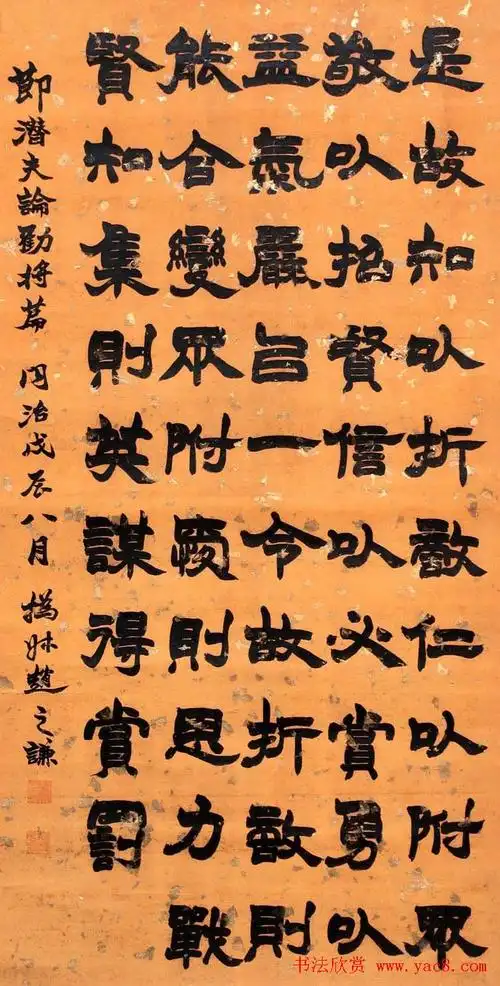 是故知以折敵仁以附眾
敬以招賢信以必賞勇以
益氣嚴㠯一令故折敵則
能合變眾附愛則思力戰
賢知集則英謀得賞罰
節潛夫論勸將篇 同治戊辰八月 撝叔趙之謙
书法欣赏 www.yac8.com